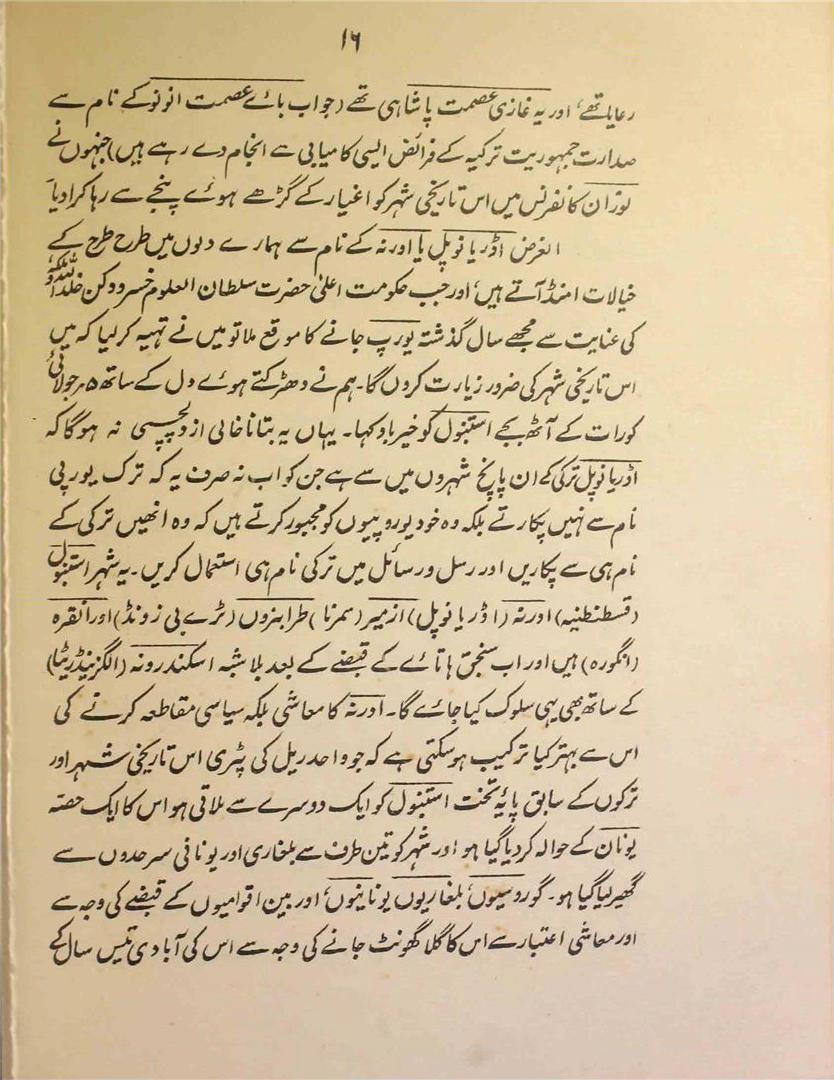 ۱۶
رعایا تھے، اور یہ غازی عصمت پاشا ہی تھے (جو اب بائے عصمت انونو کے نام سے
صدارت جمہوریت ترکیہ کے فرائض ایسی کامیابی سے انجام دے رہے ہیں) جنہوں نے
لوزان کانفرنس میں اس تاریخی شہر کو اغیار کے گڑھے ہوئے پنجے سے رہا کرا دیا۔
الغرض اڈریانوپل یا اورنہ کے نام سے ہمارے دلوں میں طرح طرح کے
خیالات امنڈ آتے ہیں، اور جب حکومت اعلیٰ حضرت سلطان العلوم خسرو دکن خلد اللہ ملکہٗ
کی عنایت سے مجھے سال گذشتہ یورپ جانے کا موقع ملا تو میں نے تہیہ کر لیا کہ میں
اس تاریخی شہر کی ضرور زیارت کروں گا۔ ہم نے دھڑکتے ہوے دل کے ساتھ ۵؍ جولائی
کو رات کے آٹھ بجے استنبول کو خیر باد کہا۔ یہاں یہ بتانا خالی از دلچسپی نہ ہوگا کہ
اڈریانوپل ترکی کے ان پانچ شہروں میں سے ہے جن کو اب نہ صرف یہ کہ ترک یورپی
نام سے نہیں پکارتے بلکہ وہ خود یوروپیوں کو مجبور کرتے ہیں کہ وہ انھیں ترکی کے
نام ہی سے پکاریں اور رسل و رسائل میں ترکی نام ہی استعمال کریں۔ یہ شہر استنبول
(قسطنطنیہ) اورنہ (اڈریانوپل) ازمیر (سمرنا) طرابزوں (ٹرے بی زونڈ) اور انقرہ
(انگورہ) ہیں اور اب سنجق ہاتائے کے قبضے کے بعد بلا شبہ اسکندرونہ (الگزینڈریٹا)
کے ساتھ بھی یہی سلوک کیا جائے گا۔ ادرنہ کا معاشی بلکہ سیاسی مقاطعہ کرنے کی
اس سے بہتر کیا ترکیب ہو سکتی ہے کہ جو واحد ریل کی پٹری اس تاریخی شہر اور
ترکوں کے سابق پایۂ تخت استنبول کو ایک دوسرے سے ملاتی ہو اس کا ایک حصہ
یونان کے حوالہ کر دیا گیا ہو اور شہر کو تین طرف سے بلغاری اور یونانی سرحدوں سے
گھیر لیا گیا ہو۔ گو روسیوں، بلغاریوں یونانیوں، اور بین اقوامیوں کے قبضے کی وجہ سے
اور معاشی اعتبار سے اس کا گلا گھونٹ جانے کی وجہ سے اس کی آبادی تیس سال کے